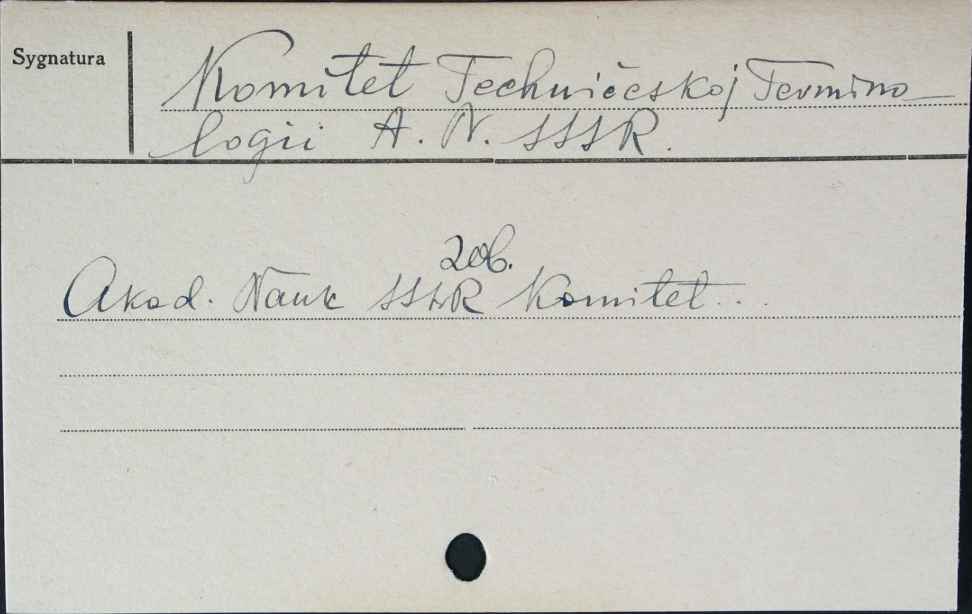 Sygnatura
Komitet Techničeskoj Termino-
logii A. N. SSSR.
zob.
Akad. Nauk SSSR Komitet...